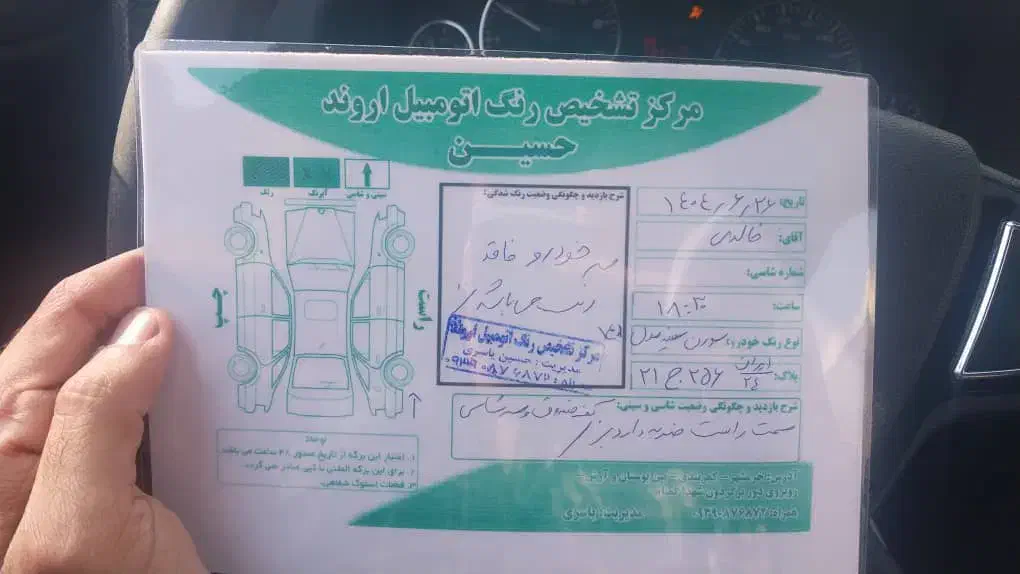 مرکز تشخیص رنگ اتومبیل اروند
حسین
رنگ
آبرنگ
سینی و شاسی
چپ
راست
شرح بازدید و چگونگی وضعیت رنگ شدگی:
خودرو فاقد
رنگ می باشد
مرکز تشخیص رنگ اتومبیل اروند
مدیریت: حسین یاسری
تاریخ: ۱۴۰۴٫۶٫۲۶
آقای: خالدی
شماره شاسی:
ساعت: ۱۸:۳۰
نوع رنگ خودرو: سورن سفید مدل
پلاک: ایران ۲۴ ۲۵۶ ج ۲۱
شرح بازدید و چگونگی وضعیت شاسی و سینی:
کف صندوق و سرشاسی
سمت راست ضربه دارد
توجه
۱. اعتبار این برگه از تاریخ صدور ۴۸ ساعت می باشد
۲. برای این برگه المثنی یا کپی صادر نمی گردد.
۳. قطعات استوک شفاهی.
آدرس: خرمشهر - کمربندی - بین بوستان و
روبروی
همراه: ۰۹۳۹۰۸۷۶۸۷۲ مدیریت: یاسری